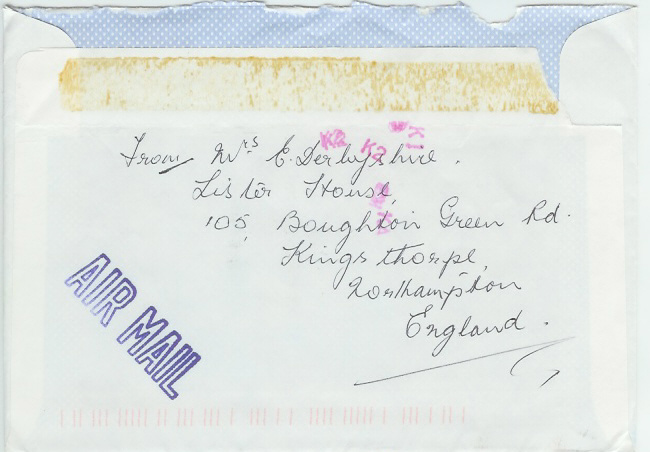 From Mrs E. Derbyshire.
Lister House,
105, Boughton Green Rd.
Kingsthorpe,
Northampton
England.
AIR MAIL
K2
K2